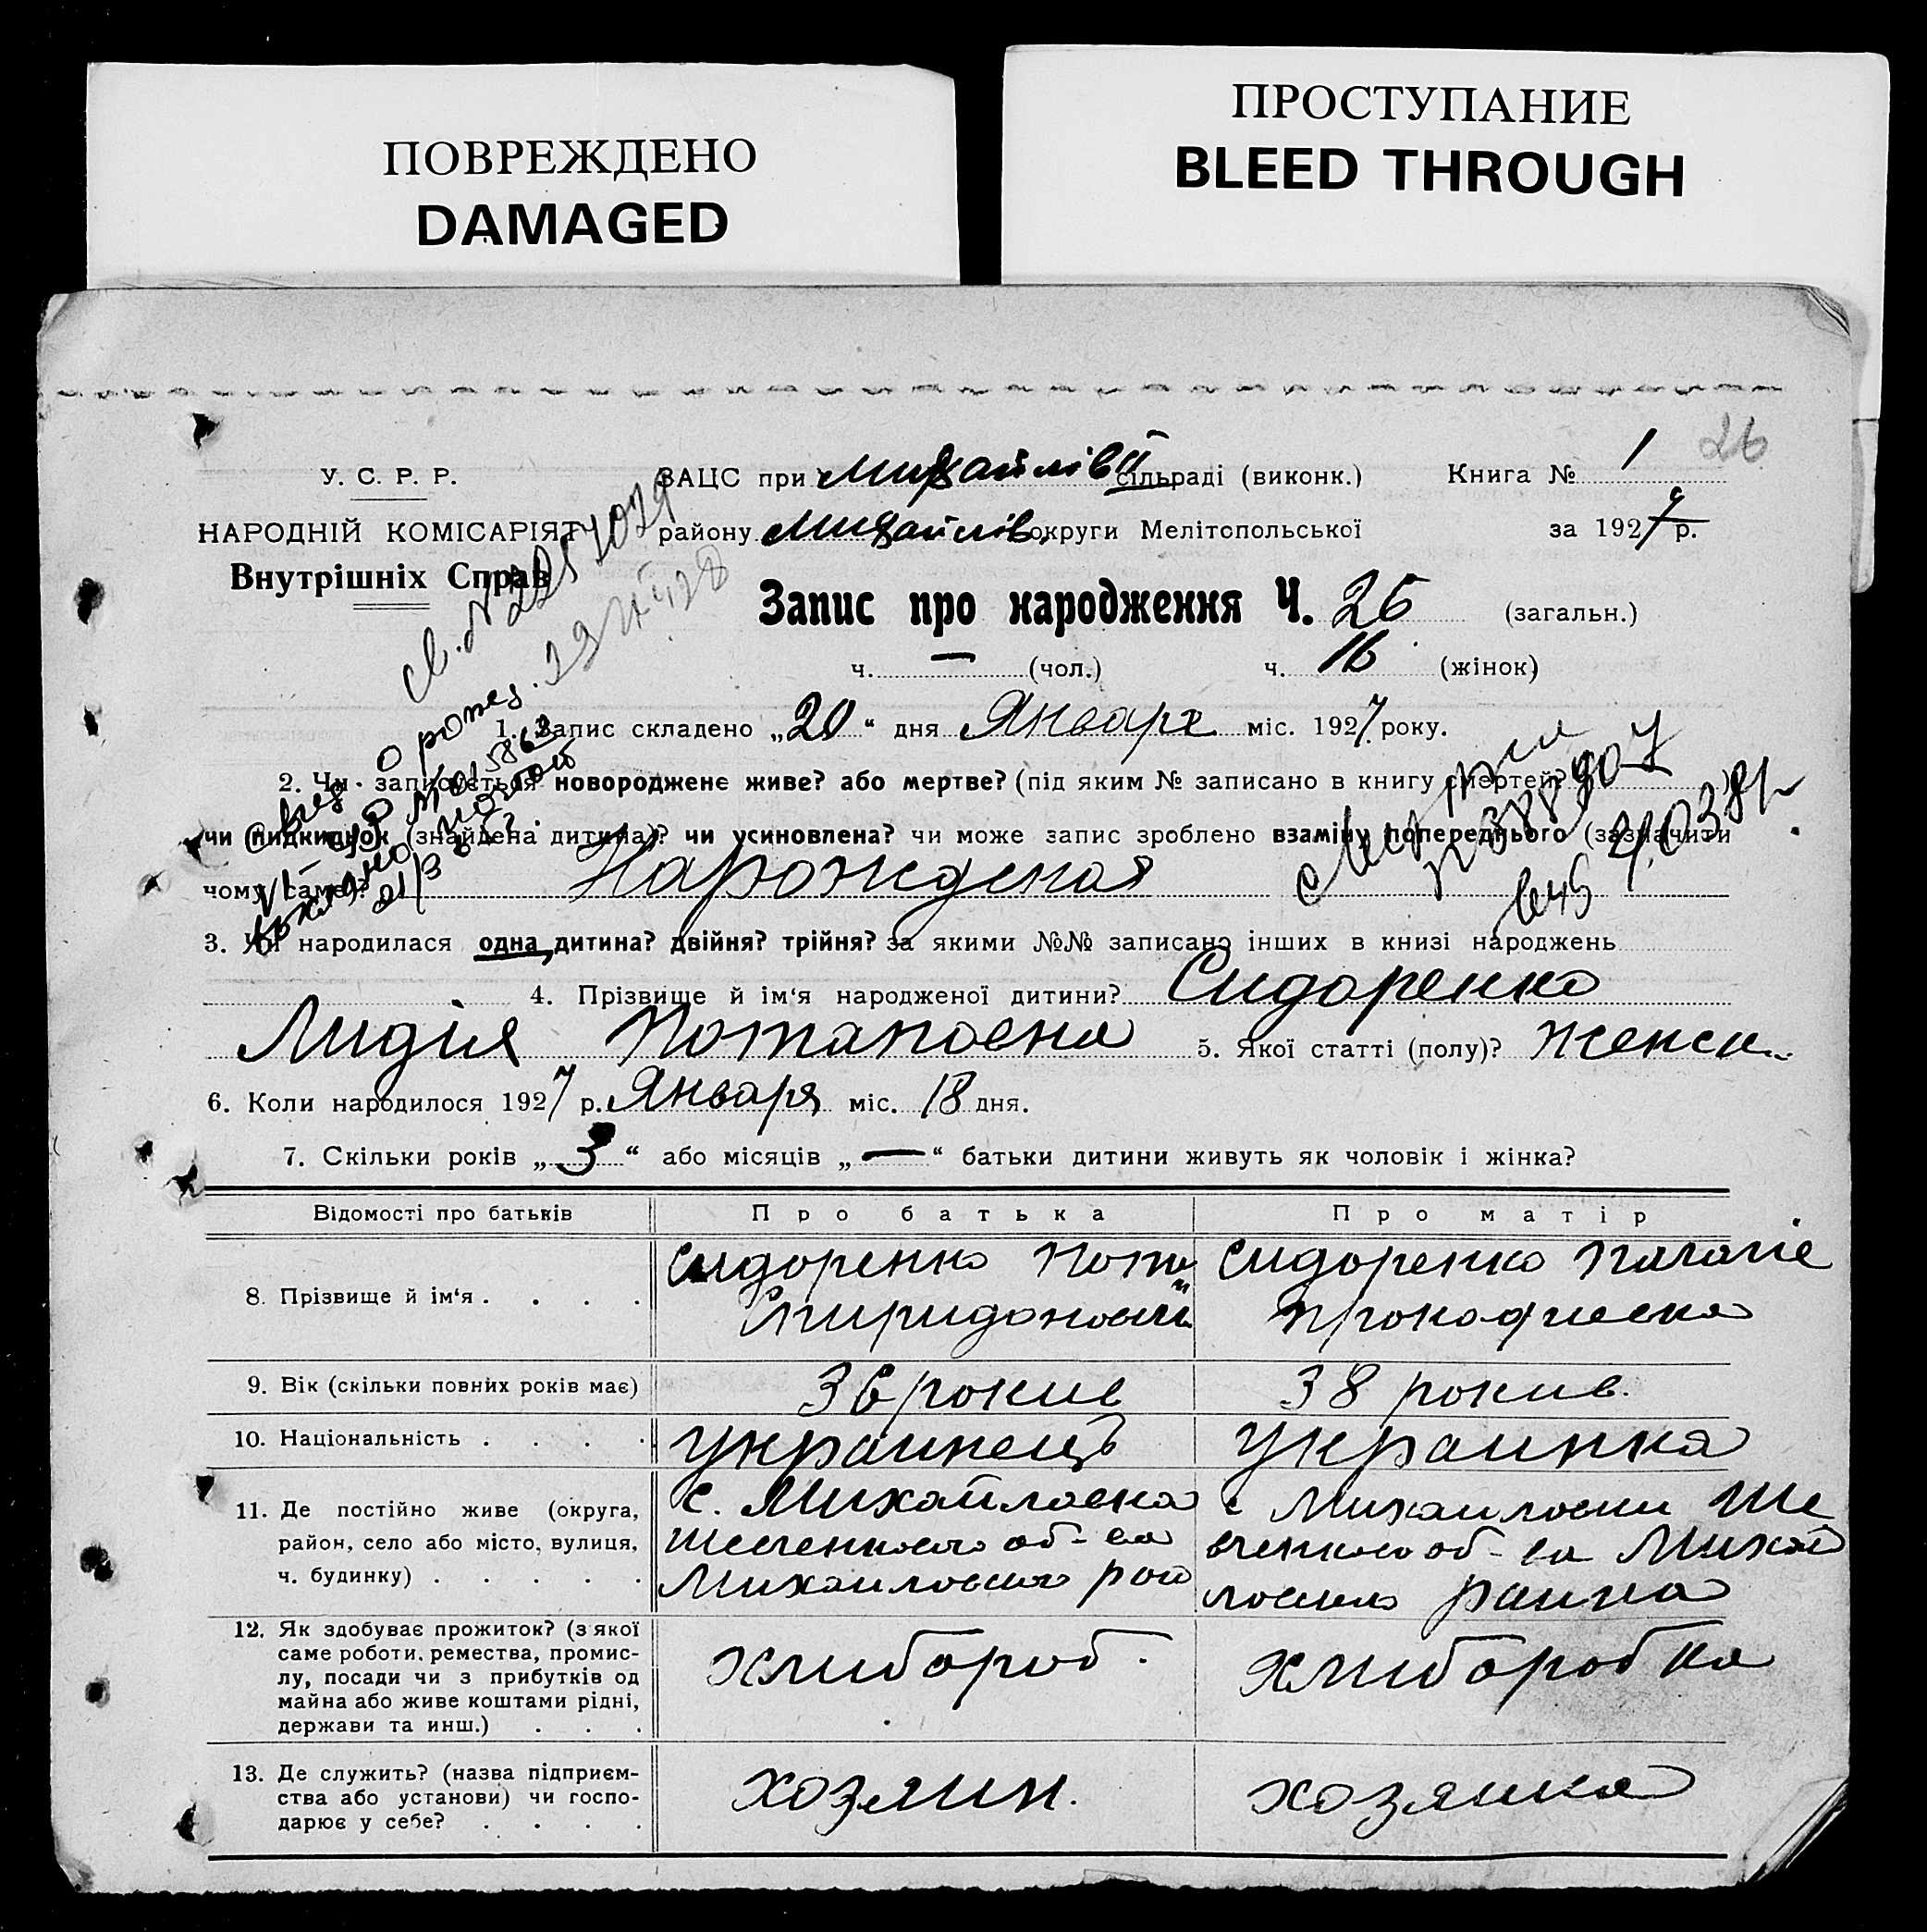 ПОВРЕЖДЕНО
DAMAGED
ПРОСТУПАНИЕ
BLEED THROUGH
26
У. С. Р. Р.
НАРОДНІЙ КОМІСАРІЯТ
Внутрішніх Справ
ЗАЦС при Михайлів II сільраді (виконк.) Книга № 1
району Михайлів. округи Мелітопольської за 1927 р.
Запис про народження Ч. 26 (загальн.)
ч. — (чол.) ч. 16 (жінок)
1. Запис складено „20“ дня Январе міс. 1927 року.
2. Чи записується новороджене живе? або мертве? (під яким № записано в книгу смертей?)
чи підкидьок (знайдена дитина)? чи усиновлена? чи може запис зроблено взаміну попереднього (зазначити
чому саме)? Нарожденая
3. Чи народилася одна дитина? двійня? трійня? за якими №№ записано інших в книзі народжень
4. Прізвище й ім'я народженої дитини? Сидоренко
Лидія Потаповна 5. Якої статті (полу)? Женск.
6. Коли народилося 1927 р. Января міс. 18 дня.
7. Скільки років „3“ або місяців „—“ батьки дитини живуть як чоловік і жінка?
Відомості про батьків Про батька Про матір
8. Прізвище й ім'я . . . . Сидоренко Сидоренко
9. Вік (скільки повних років має) 36 рокив 38 рокив.
10. Національність . . . . Украинець Украинка
11. Де постійно живе (округа, с. Михайловка
район, село або місто, вулиця,
ч. будинку) . . . . .
12. Як здобуває прожиток? (з якої
саме роботи, ремества, промис-
лу, посади чи з прибутків од хлибороб. хлиборобка
майна або живе коштами рідні,
держави та инш.) . . .
13. Де служить? (назва підприєм-
ства або установи) чи госпо- хозяин. хозяика
дарює у себе? . . . .